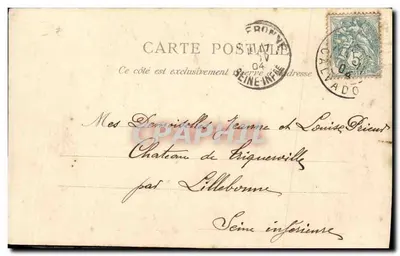 CARTE POSTALE
Ce côté est exclusivement réservé à l'adresse
04
SEINE-INFRE
CALVADOS
5
04
Mes Demoiselles Jeanne et Louise Prieur
Chateau de Triquerville
par Lillebonne
Seine inférieure
CPAPHIL